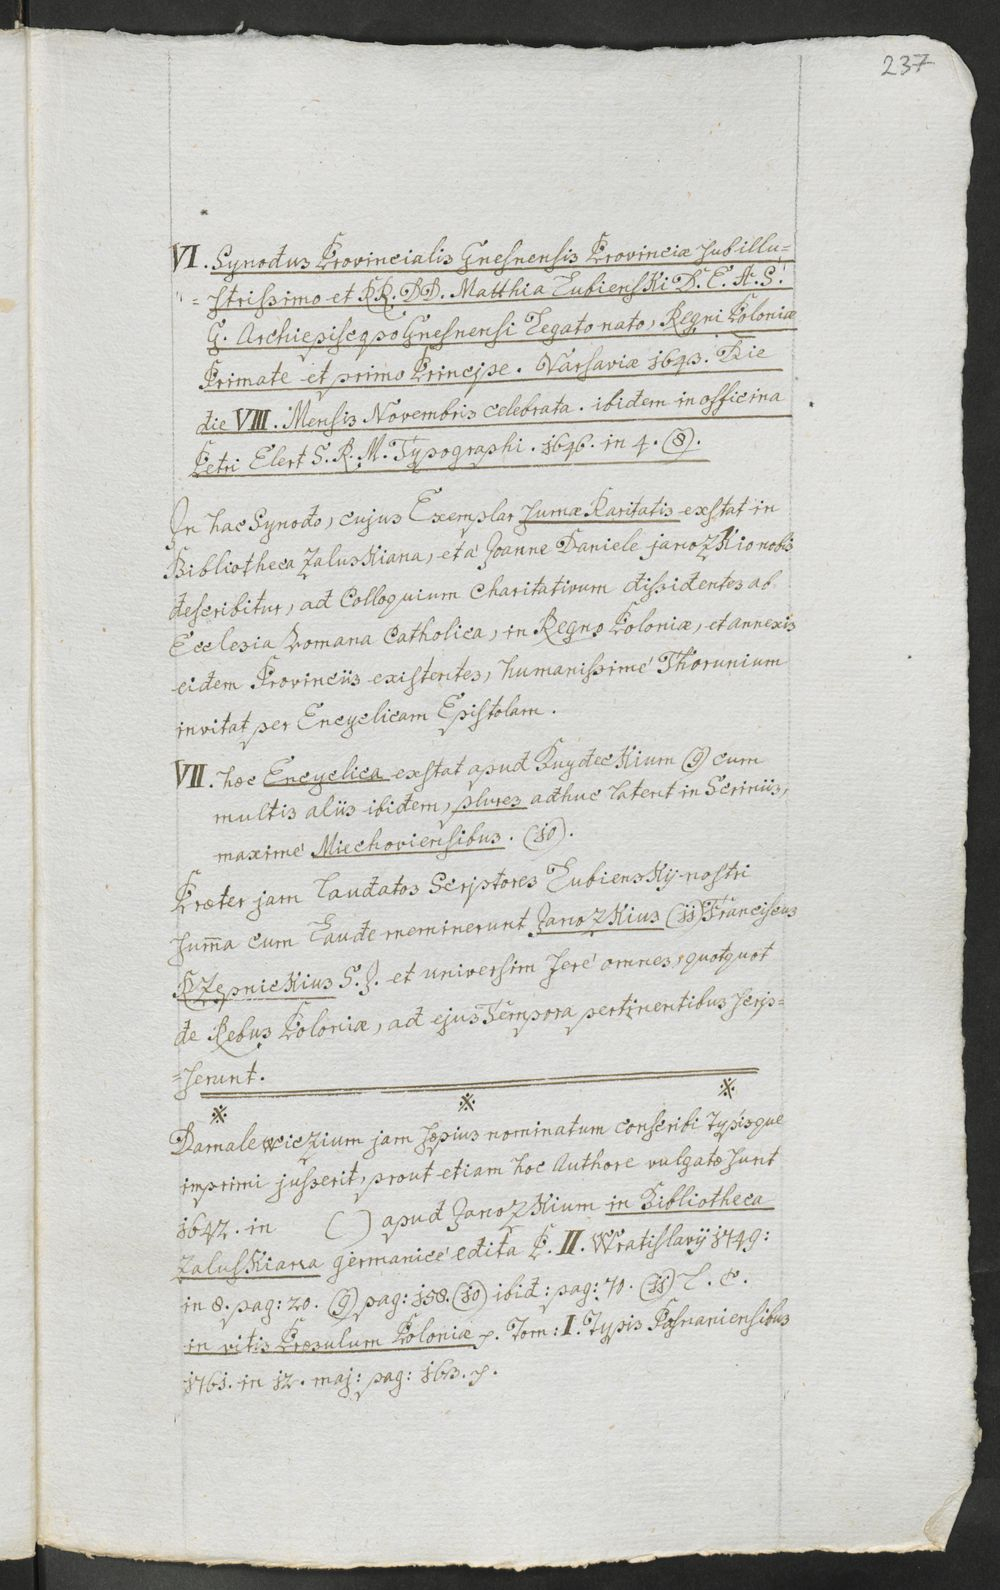 237
VI. Synodus Provincialis Gnesnensis Provinciæ sub illu=
=strissimo et RR. DD. Matthia Lubienski D. E. A. S.
G. Archiepiscopo Gnesnensi Legato nato, Regni Poloniæ
Primate et primo Principe. Varsaviæ 1643. Die
die VIII. Mensis Novembris celebrata. ibidem in officina
Petri Elert S. R. M. Typographi. 1646. in 4. (8).
In hac Synodo, cujus Exemplar sumæ Raritatis exstat in
Bibliotheca Zaluskiana, et a Joanne Daniele janozkio nobis
describitur, ad Colloquium Charitativum dissidentes ab
Ecclesia Romana Catholica, in Regno Poloniæ, et annexis
eidem Provinciis existentes, humanissimé Thorunium
invitat per Encyclicam Epistolam.
VII. hæc Encyclica exstat apud Kuydeckium (9) cum
multis aliis ibidem, plures adhuc latent in Scriniis,
maximé Miechoviensibus. (10).
Præter jam laudatos Scriptores Lubienskij nostri
sum̄a cum Laude meminerunt Janozkius (11) Franciscus
RZepnickius S. J. et universim feré omnes, quotquot
de Rebus Poloniæ, ad ejus Tempora pertinentibus scrip=
=serunt.
※ ※ ※
Damalewiczium jam sæpius nominatum conscribi typisque
imprimi jusserit, prout etiam hoc Authore vulgatæ sunt
1647. in ( ) apud Janozkium in Bibliotheca
Zaluskiana germanicé edita P. II. Wratislavij 1749:
in 8. pag: 20. (9) pag: 158. (10) ibid: pag: 70. (11) l. c.
in vitis Præsulum Poloniæ p. Tom: I. Typis Posnaniensibus
1761. in 12. maj: pag: 163. p.